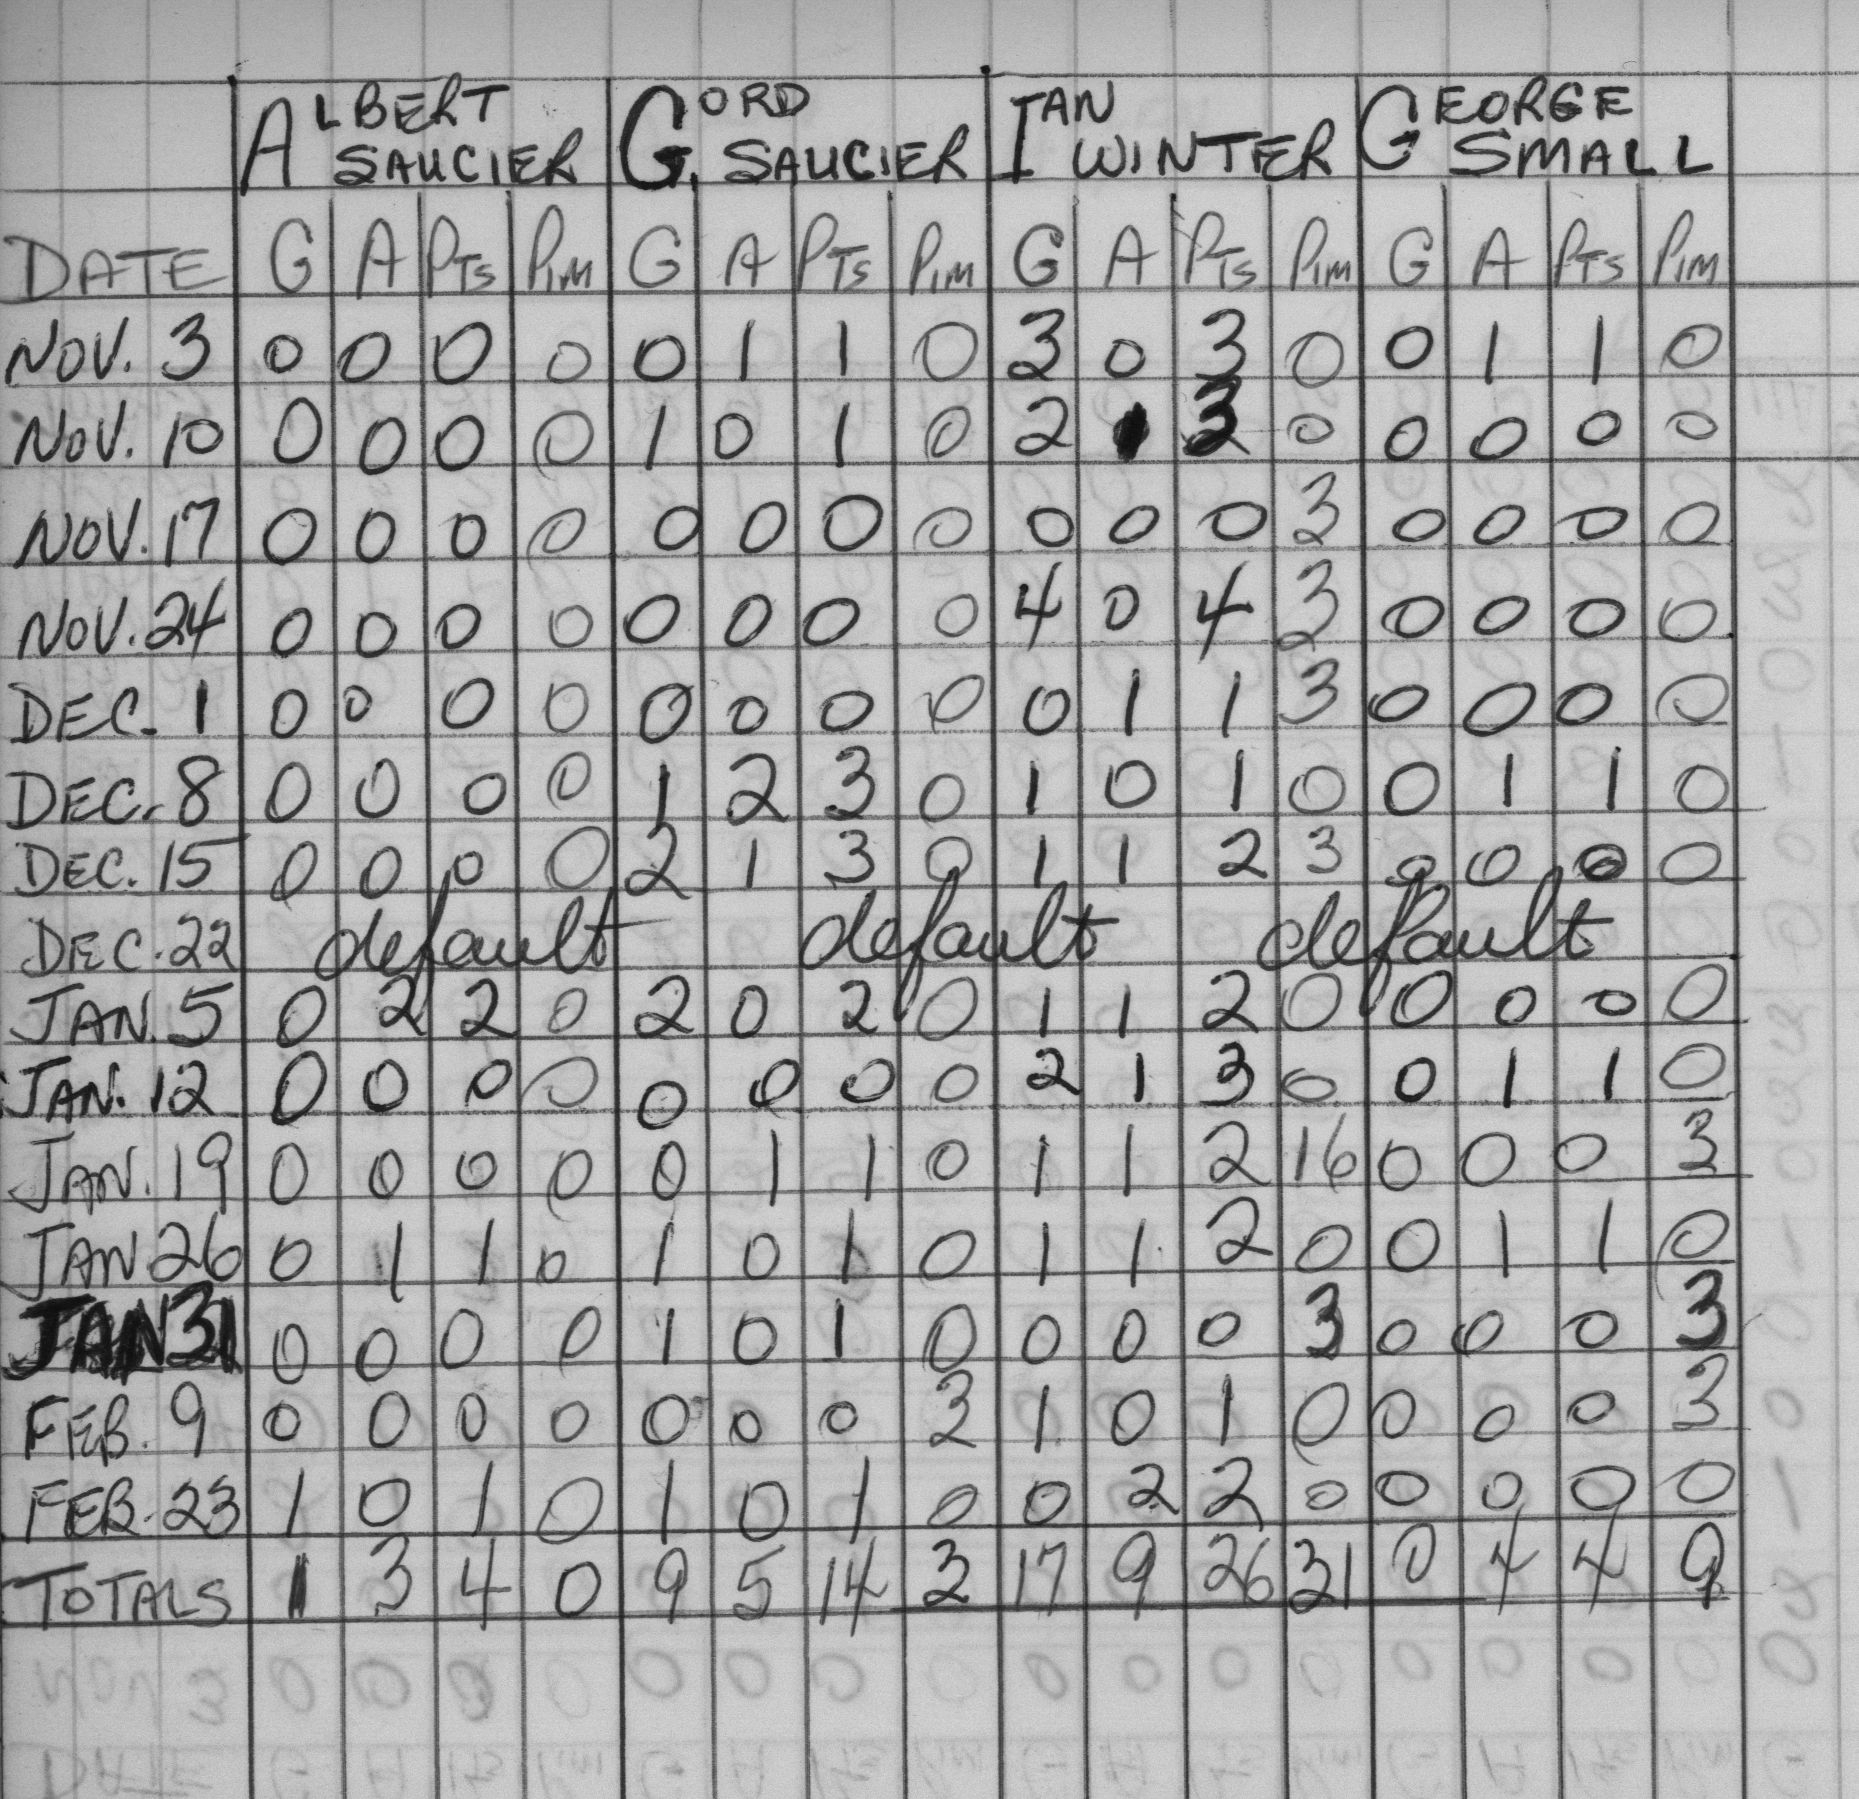 ALBERT SAUCIER G. ORD SAUCIER IAN WINTER GEORGE SMALL
DATE G A PTS PIM G A PTS PIM G A PTS PIM G A PTS PIM
NOV. 3 0 0 0 0 0 1 1 0 3 0 3 0 0 1 1 0
NOV. 10 0 0 0 0 1 0 1 0 2 1 3 0 0 0 0 0
NOV. 17 0 0 0 0 0 0 0 0 0 0 0 3 0 0 0 0
NOV. 24 0 0 0 0 0 0 0 0 4 0 4 3 0 0 0 0
DEC. 1 0 0 0 0 0 0 0 0 0 1 1 3 0 0 0 0
DEC. 8 0 0 0 0 1 2 3 0 1 0 1 0 0 1 1 0
DEC. 15 0 0 0 0 2 1 3 0 1 1 2 3 0 0 0 0
DEC. 22 default default default
JAN. 5 0 2 2 0 2 0 2 0 1 1 2 0 0 0 0 0
JAN. 12 0 0 0 0 0 0 0 0 2 1 3 0 0 1 1 0
JAN. 19 0 0 0 0 0 1 1 0 1 1 2 16 0 0 0 3
JAN 26 0 1 1 0 1 0 1 0 1 1 2 0 0 1 1 0
JAN 31 0 0 0 0 1 0 1 0 0 0 0 3 0 0 0 3
FEB. 9 0 0 0 0 0 0 0 3 1 0 1 0 0 0 0 3
FEB. 23 1 0 1 0 1 0 1 0 0 2 2 0 0 0 0 0
TOTALS 1 3 4 0 9 5 14 3 17 9 26 31 0 4 4 9